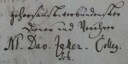 gehorsamst. verbundenster
Diener und Verehrer
M. Dav. Jaker. Colleg.